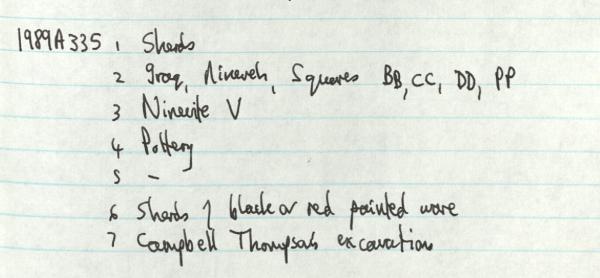 1989A335 1 Sherds
2 Iraq, Nineveh, Squares BB, CC, DD, PP
3 Ninevite V
4 Pottery
5 -
6 Sherds of black or red painted ware
7 Campbell Thompson's excavation